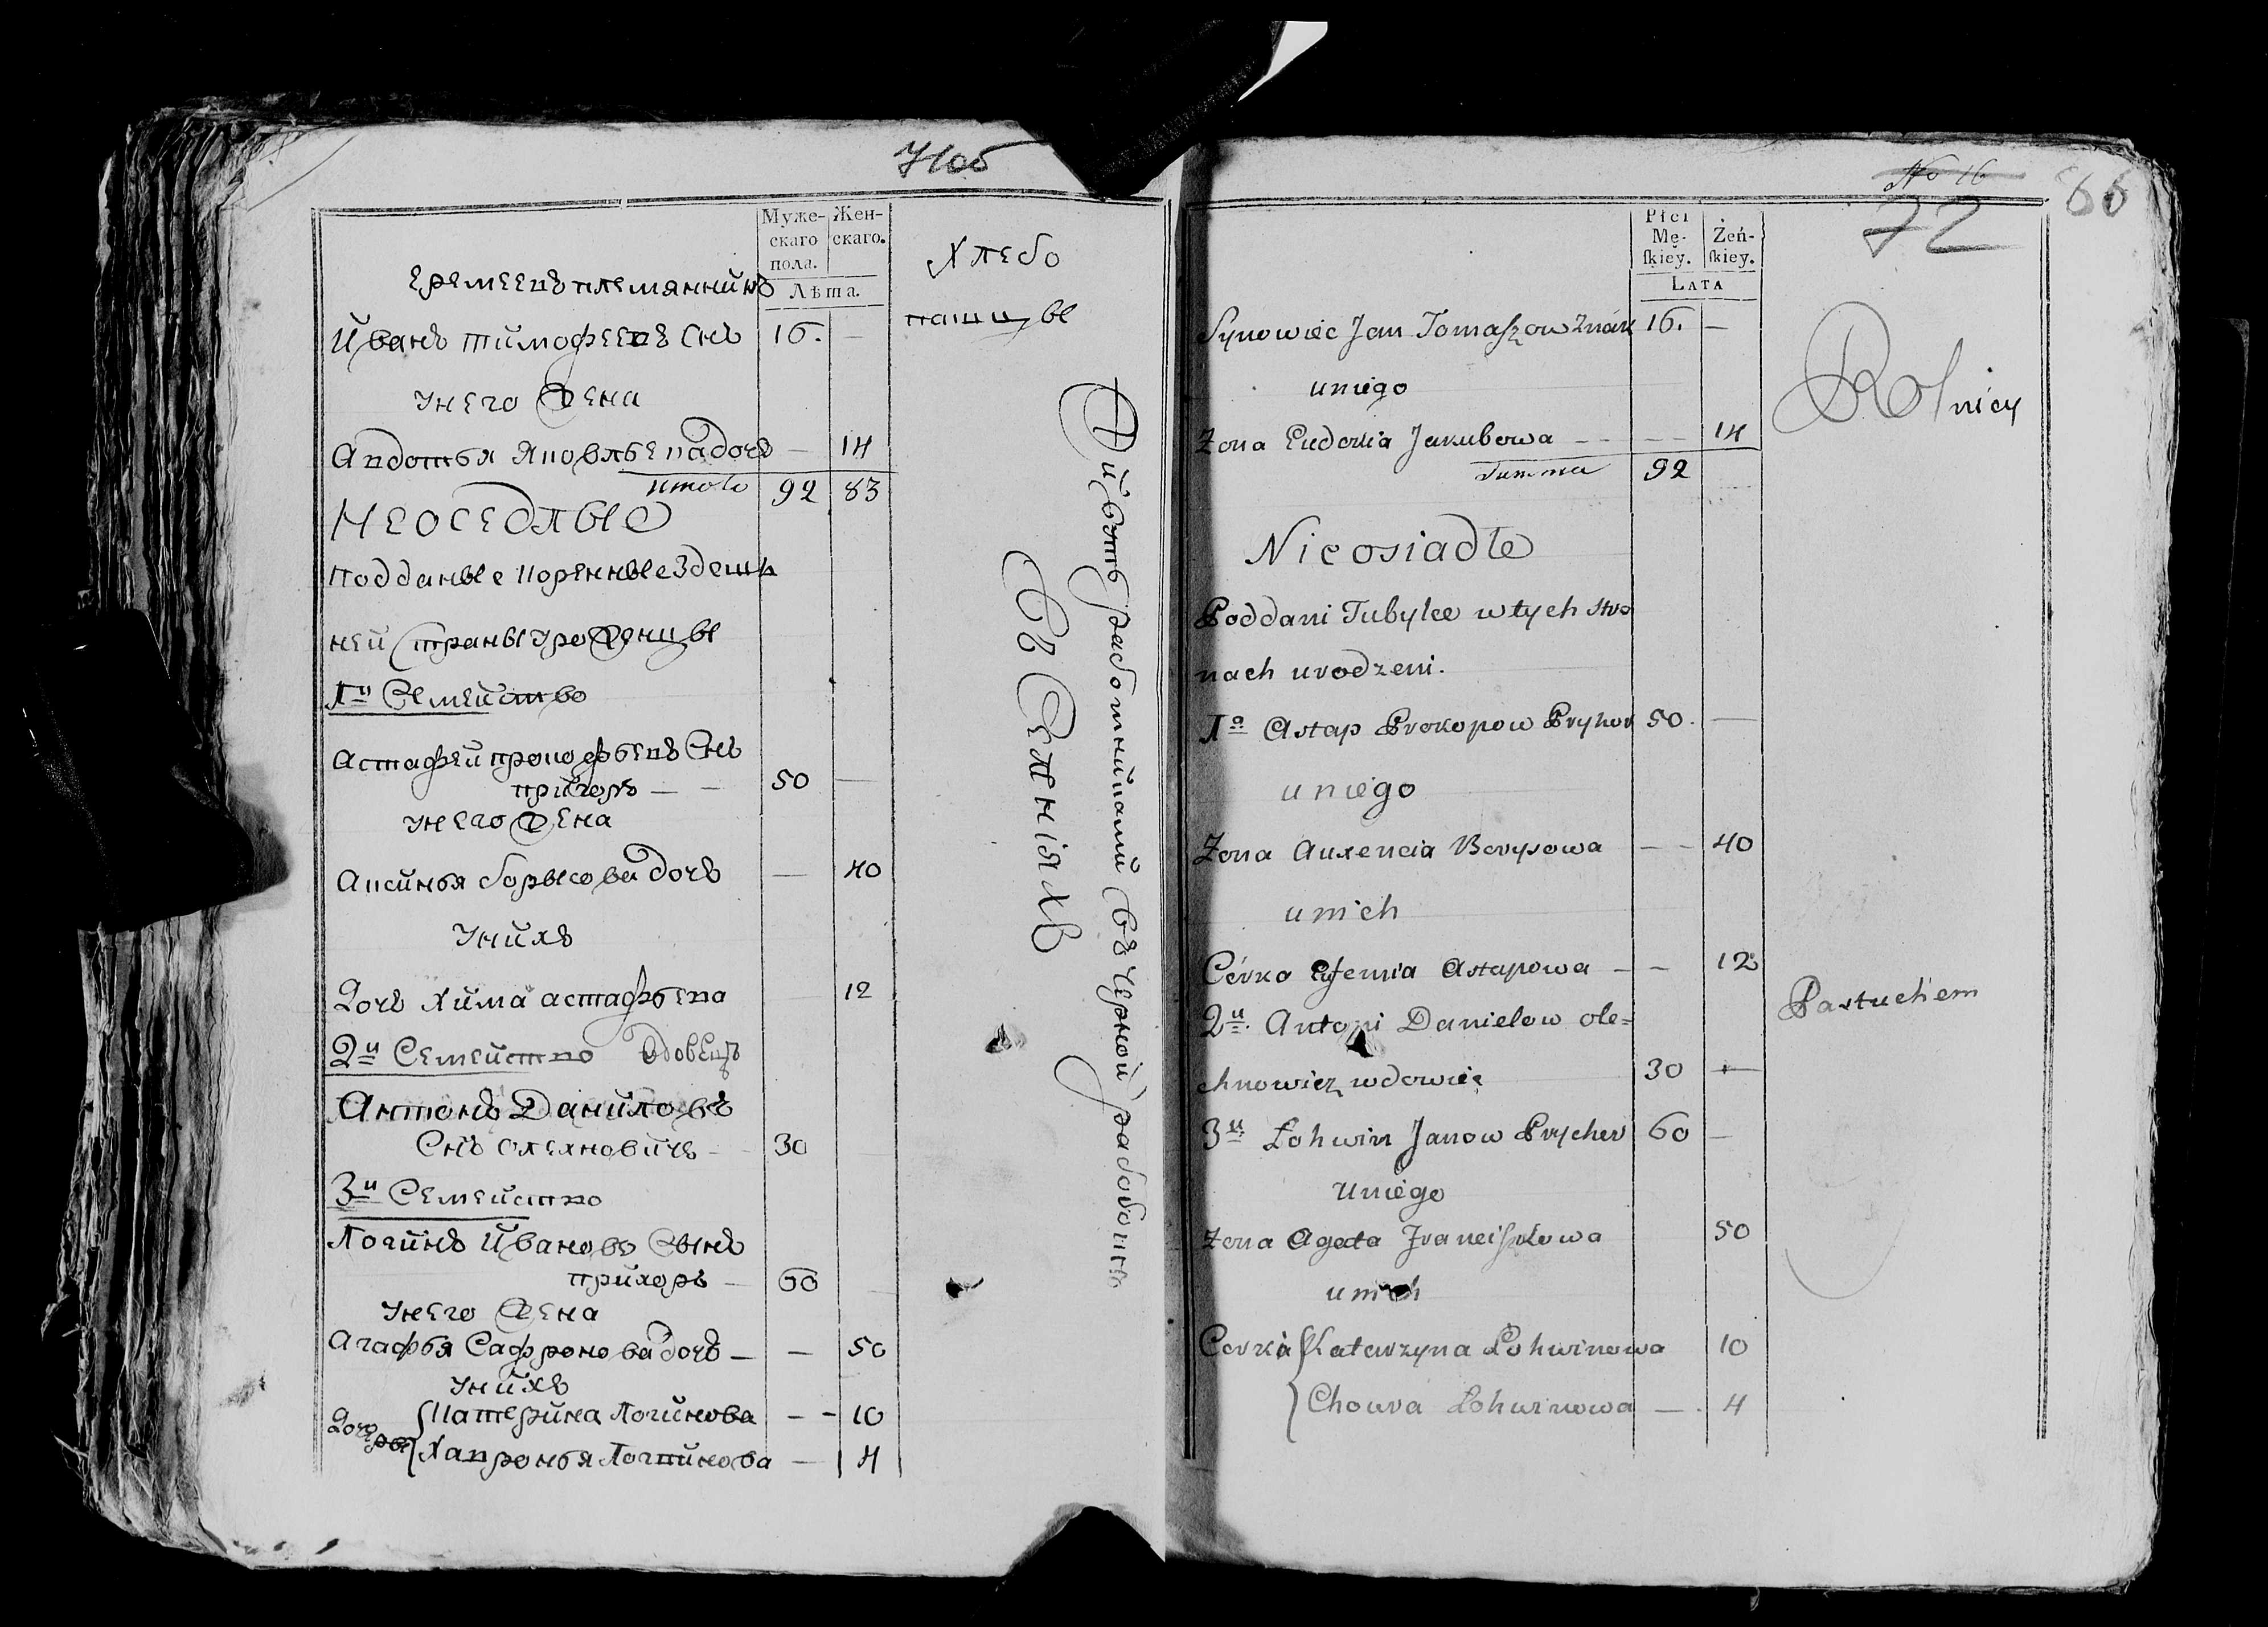 71об
Муже-
скаго
пола.
Жен-
скаго.
Лѣта.
Еремеевъ племянникъ
Иванъ тимофеевъ Снъ 16. —
унего Жена
Авдотья Яковлевна дочь — 14
итого 92 83
Неоседлые
подданые коренные здеш
ней страны уроженцы
1и Семейство
Астафей прокофьевъ Снъ
прихоръ — — 50 —
унего Жена
Аксинья борысова дочь — 40
Унихъ
Дочь Хима астафьева 12
2и Семейство вдовецъ
Антонъ Даниловъ
Снъ олехновичъ 30
3и Семейство
Логинъ Ивановъ Сынъ
прихоръ — 60
унего Жена
Агафья Сафронова дочь — — 50
унихъ
Дочери { Катерина Логинова — — 10
{ Хавронья Логинова — 4
Хлебо
пашцы
Живутъ работниками въ черной работе
въ Селніяхъ
No 16
72
66
Płci
Mę-
ſkiey.
Zeń-
ſkiey.
LATA
Synowiec Jan Tomaſzow Znák 16. —
uniego
Zona Eudokia Jakubowa — — — — 14
Summa 92
Nieosiadłe
Poddani Tubylce w tych stro
nach urodzeni.
1o Astap Prokopow Pryhor 50. —
uniego
Zona Auxencia Borysowa — — 40
unich
Córka Eufemia Astapowa — — 12
2u. Antoni Danielow ole=
chnowicz wdowiec 30 —
3u. Lohwin Janow Prycher 60 —
Uniego
Zona Agata Franciſzkowa 50
unich
Corki { Katarzyna Lohwinowa 10
{ Chowra Lohwinowa — 4
Rolnicy
Pastuchem